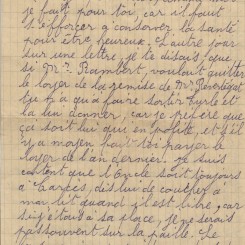 je fait pour toi, car il faut
s'efforcer a conserver la santé
pour être heureux. L'autre jour
sur une lettre, je te disais que
si Mr Rambert, voulait quitter
le loyer de la remise de Mr
tu n'a qu'a faire sortir
la lui donner, car je préfère que
ça soit lui qui en profite, et s'il
y a moyen fait toi payer le
loyer de l'an dernier. Je suis
content que l'Oncle soit toujours
a dis lui de coucher a
mon lit quand il est libre, car
si j'étais a sa place, je ne serais
pas souvent sur la paille. Le